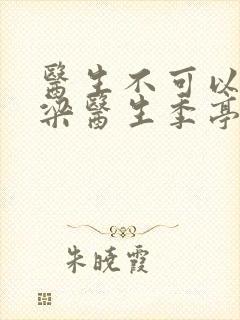 醫生不可以
梁醫生季亭
朱曉霞